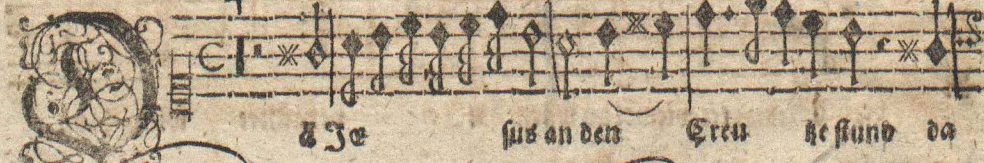 Da Je sus an den Creu tze stund da